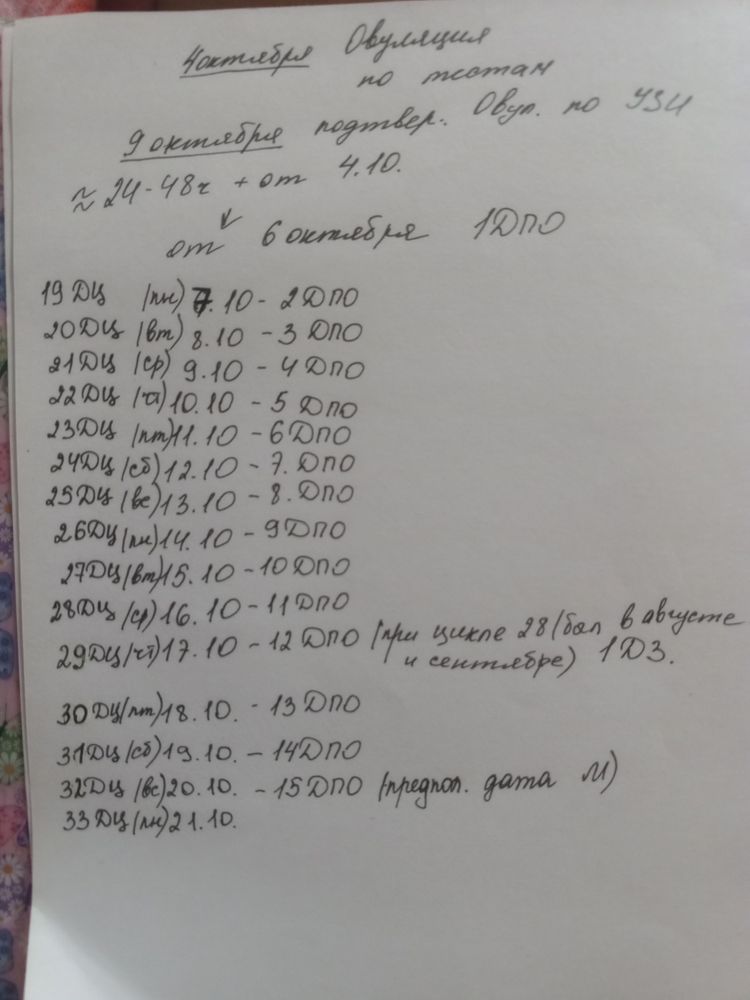 4 октября Овуляция
по тестам
9 октября подтвер. Овул. по УЗИ
≈ 24-48ч + от 4.10.
от 6 октября 1ДПО
19 ДЦ (пн) 7.10 - 2 ДПО
20 ДЦ (вт) 8.10 - 3 ДПО
21 ДЦ (ср) 9.10 - 4 ДПО
22 ДЦ (чт) 10.10 - 5 ДПО
23 ДЦ (пт) 11.10 - 6 ДПО
24 ДЦ (сб) 12.10 - 7. ДПО
25 ДЦ (вс) 13.10 - 8. ДПО
26 ДЦ (пн) 14.10 - 9 ДПО
27 ДЦ (вт) 15.10 - 10 ДПО
28 ДЦ (ср) 16.10 - 11 ДПО
29 ДЦ (чт) 17.10 - 12 ДПО (при цикле 28 (был в августе
и сентябре) 1ДЗ.
30 ДЦ (пт) 18.10. - 13 ДПО
31 ДЦ (сб) 19.10. - 14 ДПО
32 ДЦ (вс) 20.10. - 15 ДПО (предпол. дата М)
33 ДЦ (пн) 21.10.